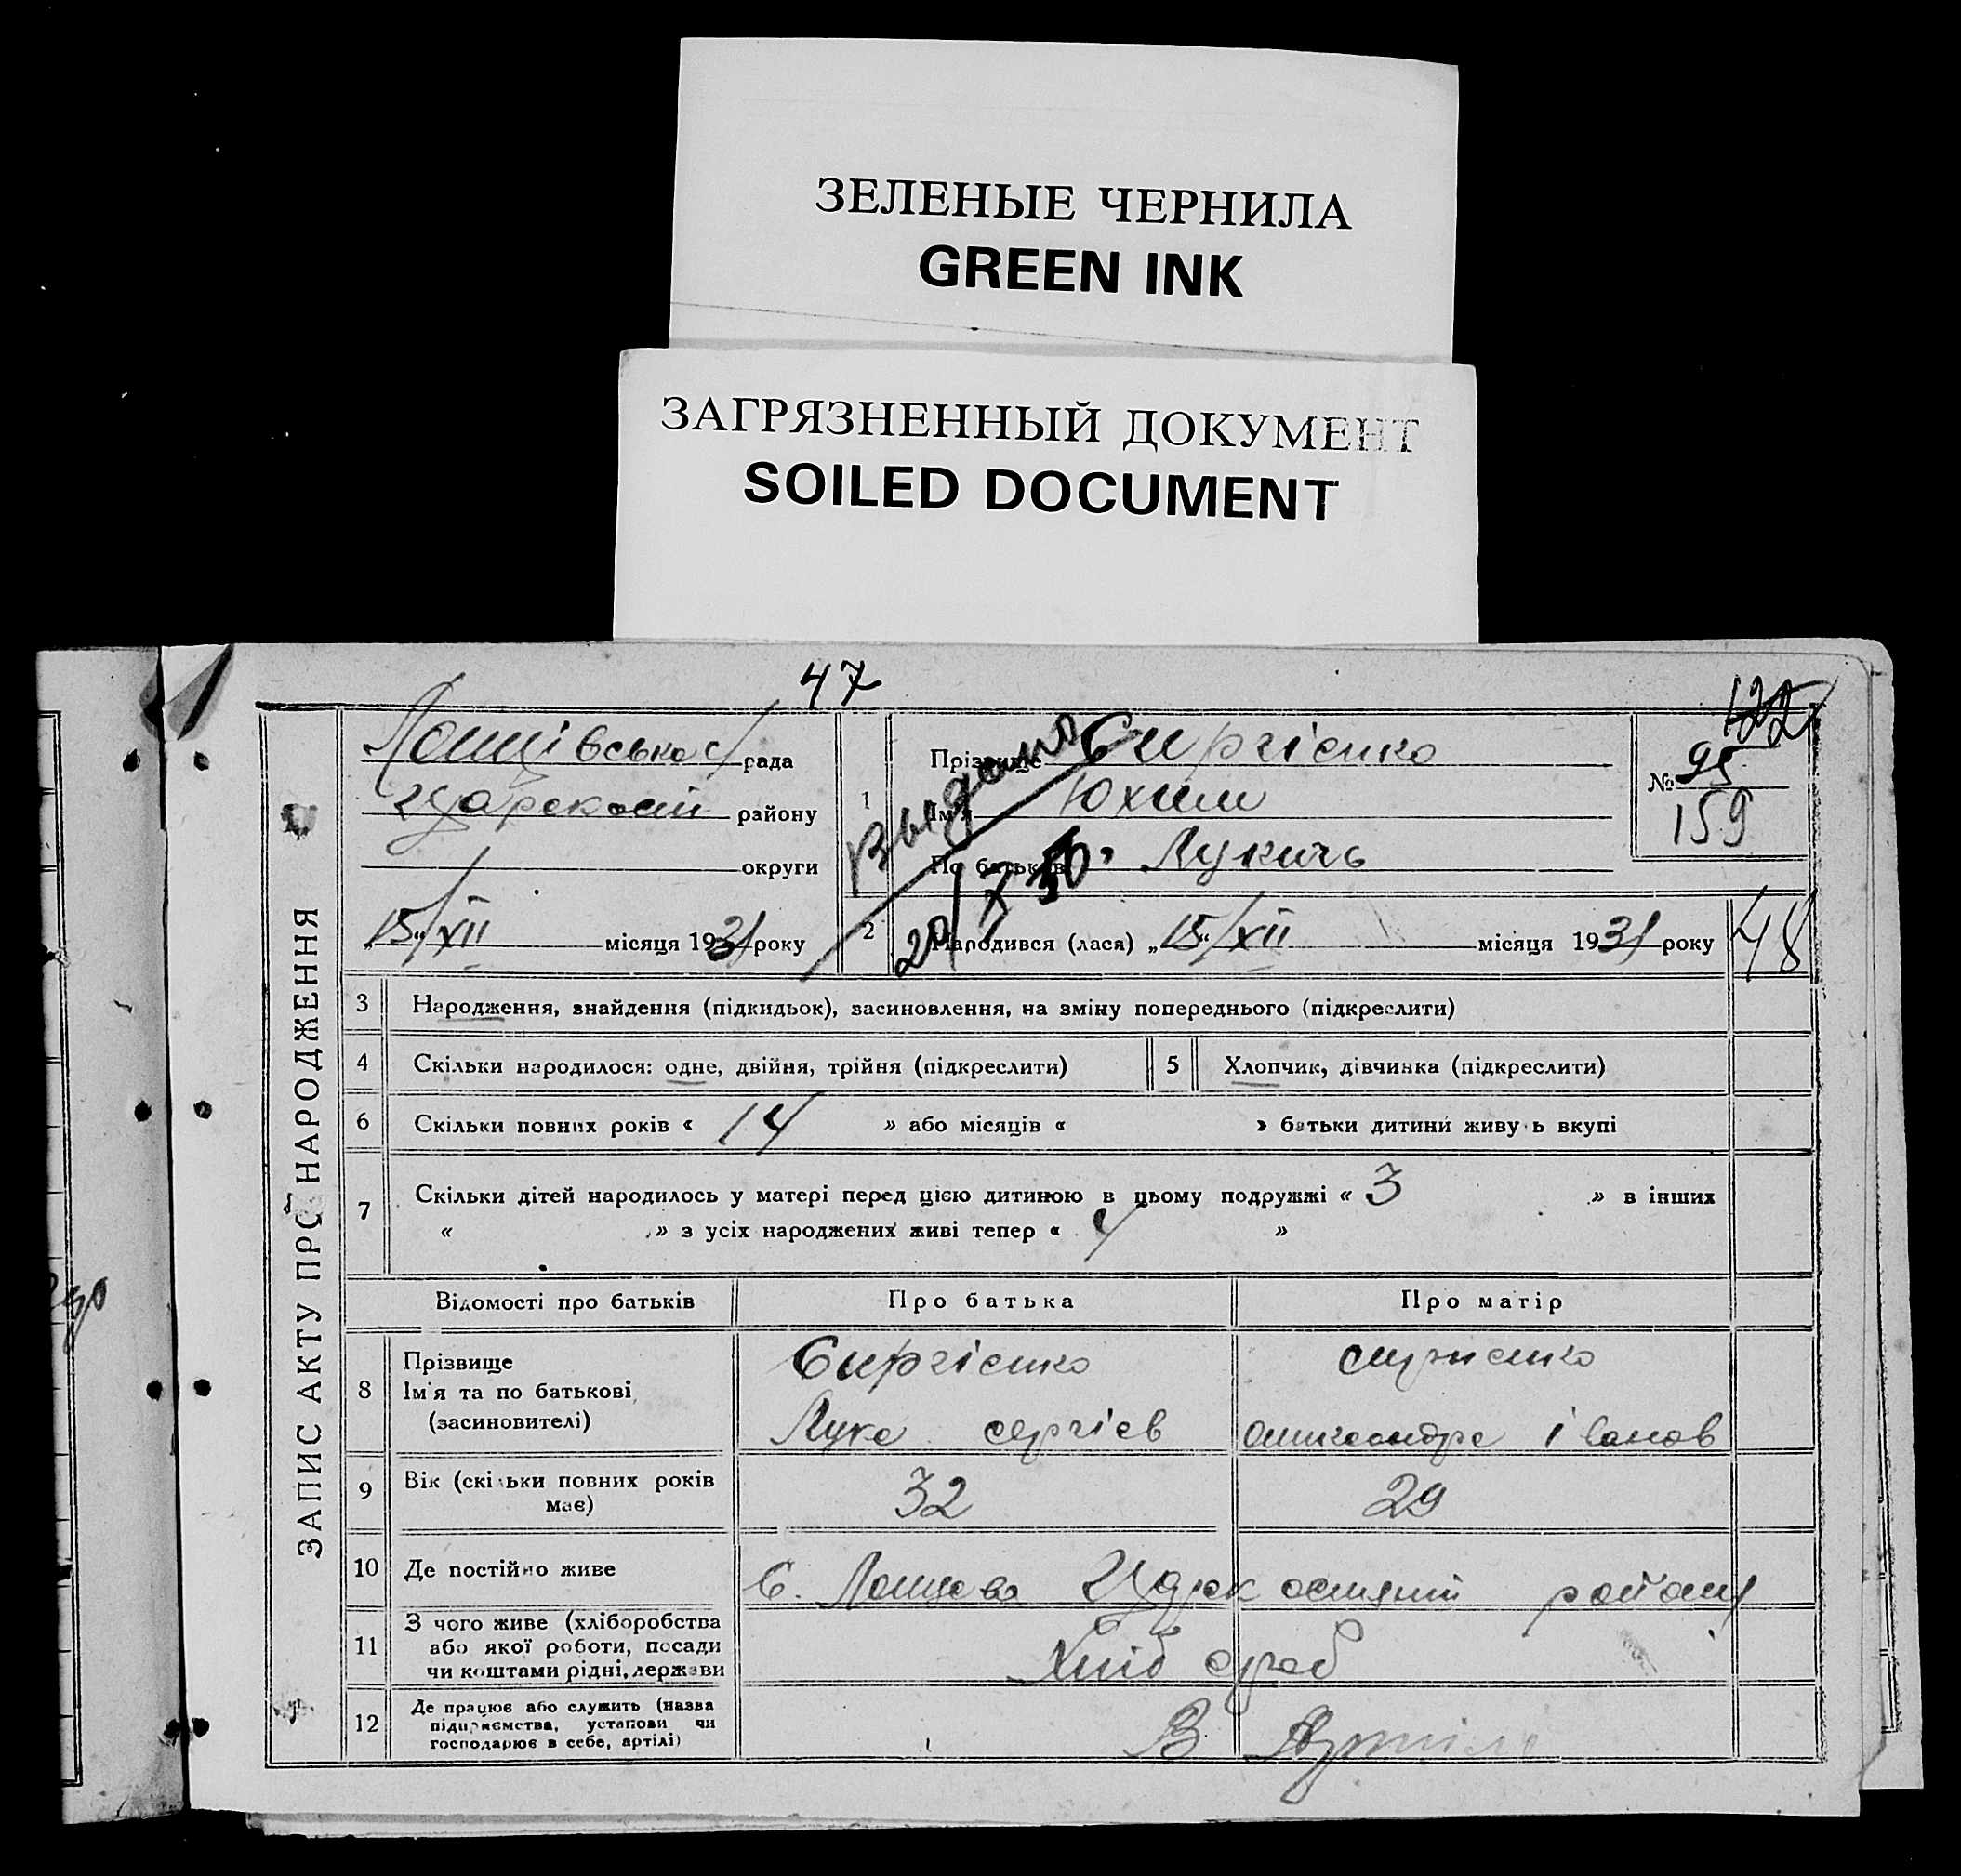 ЗЕЛЕНЫЕ ЧЕРНИЛА
GREEN INK
ЗАГРЯЗНЕННЫЙ ДОКУМЕНТ
SOILED DOCUMENT
47
122
ЗАПИС АКТУ ПРО НАРОДЖЕННЯ
рада
району
округи
„15“/XII місяця 1931 року
Выдано
20/X 50
1
Прізвище
Ім'я Юхим
По батькові Лукичь
№ 95
159
2
Народився (лася) „15“/XII місяця 1931 року
48
3 Народження, знайдення (підкидьок), засиновлення, на зміну попереднього (підкреслити)
4 Скільки народилося: одне, двійня, трійня (підкреслити)
5 Хлопчик, дівчинка (підкреслити)
6 Скільки повних років « 14 » або місяців « » батьки дитини живуть вкупі
7 Скільки дітей народилось у матері перед цією дитиною в цьому подружжі « 3 » в інших
« » з усіх народжених живі тепер « 4 »
Відомості про батьків Про батька Про матір
8 Прізвище
Ім'я та по батькові
(засиновителі)
Лука Сергієв
Іванов
9 Вік (скільки повних років має) 32 29
10 Де постійно живе
С. району
11 З чого живе (хліборобства
або якої роботи, посади
чи коштами рідні, держави
Хліб ороб
12 Де працює або служить (назва
підприємства, установи чи
господарює в себе, артілі)
В Артілі